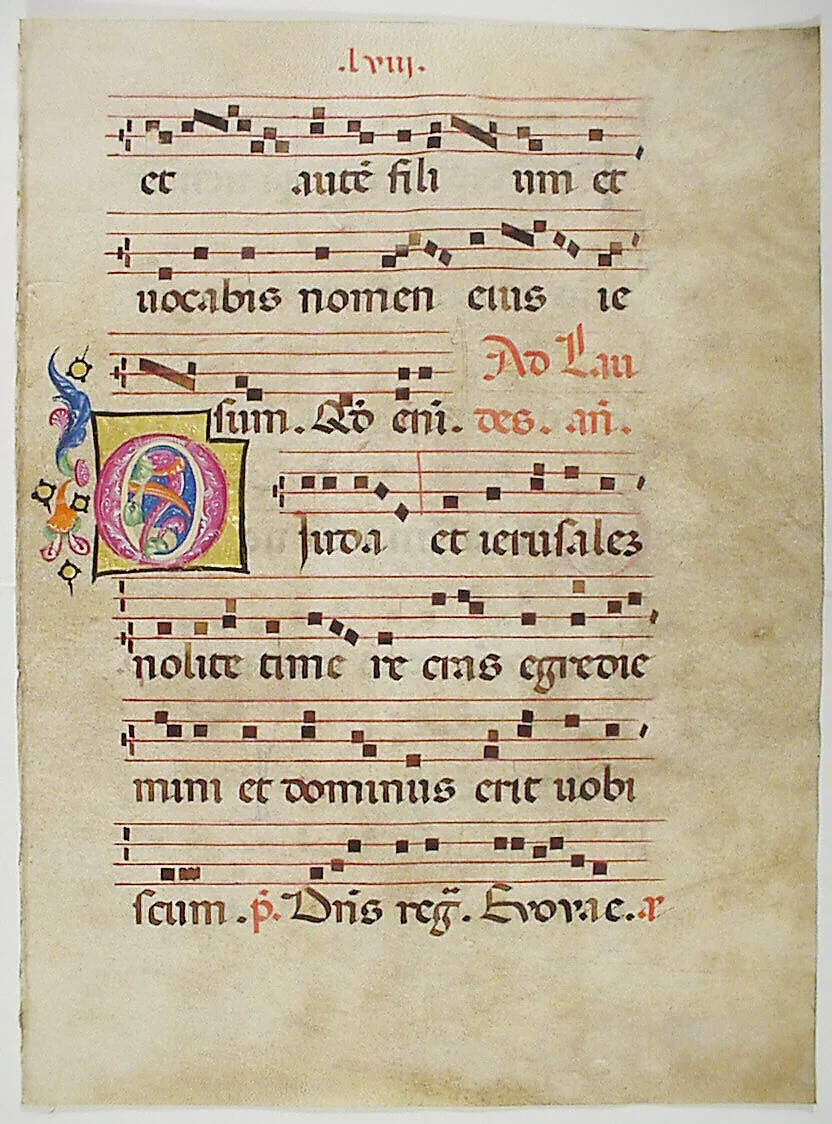 .lviij.
et autē fili um et
uocabis nomen eius ie
Ad Lau
sum. Qd̄ eni. des. an̄.
O Juda et ierusalez
nolite time re cras egredie
mini et dominus erit uobi
scum. p̄. Dn̄s reḡ. Evovae. ar